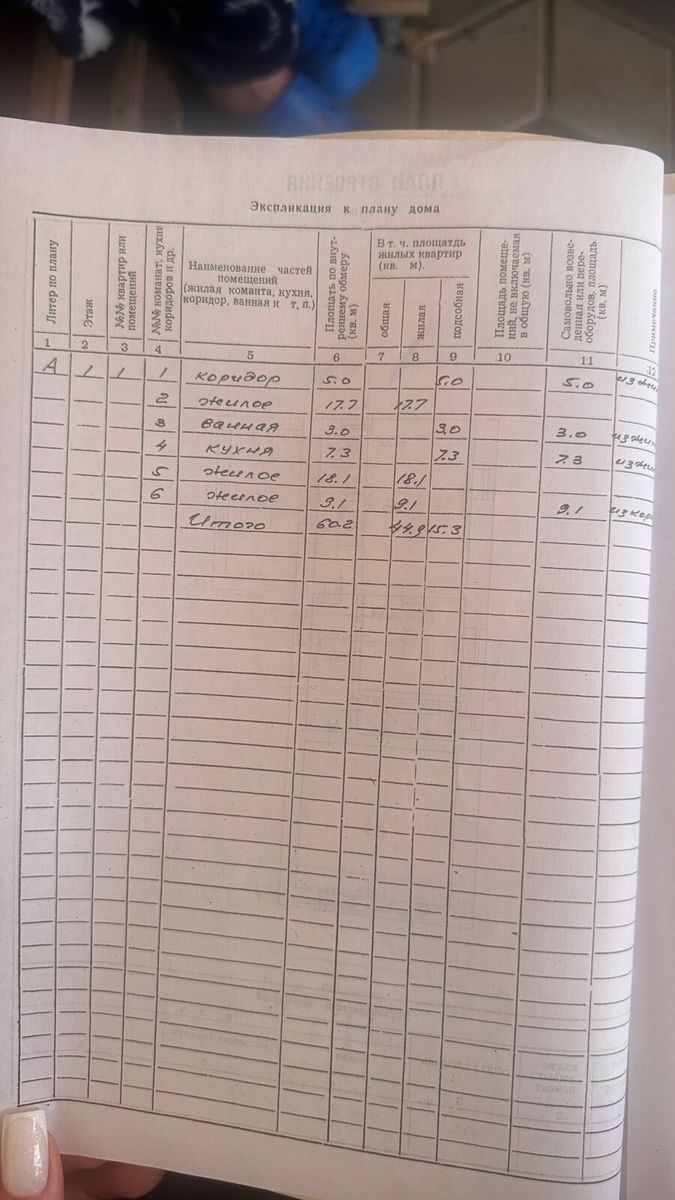 Экспликация к плану дома
Литер по плану | Этаж | №№ квартир или помещений | №№ команат, кухня коридоров и др. | Наименование частей помещений (жилая команта, кухня, коридор, ванная и т, п.) | Площать по внутреннему обмеру (кв. м) | В т. ч. площатдь жилых квартир (кв. м). | общая | жилая | подсобная | Площадь помещений, не включаемая в общую (кв. м) | Самовольно возведенная или переоборудов, площадь (кв. м) | Примечание
1 2 3 4 5 6 7 8 9 10 11 12
А 1 1 1 коридор 5.0 5.0 5.0
2 жилое 17.7 17.7
3 ванная 3.0 3.0 3.0
4 кухня 7.3 7.3 7.3
5 жилое 18.1 18.1
6 жилое 9.1 9.1 9.1
Итого 60.2 44.9 15.3